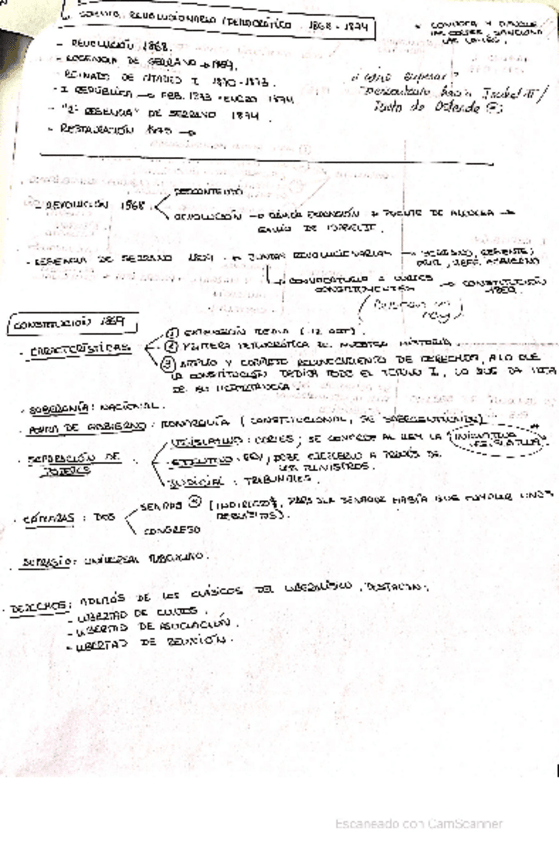 SEXENIO REVOLUCIONARIO/DEMOCRÁTICO 1868-1874
* CONVOCA Y DISUELVE
LAS CORTES, SANCIONA
LAS LEYES.
- REVOLUCIÓN 1868.
- REGENCIA DE SERRANO → 1869.
- REINADO DE AMADEO I 1870-1873.
- I REPÚBLICA → FEB. 1873 - ENERO 1874
- "2ª REGENCIA" DE SERRANO 1874.
- RESTAURACIÓN 1875 →
descontento hacia Isabel II /
Pacto de Ostende
- REVOLUCIÓN 1868
DESCONTENTO
REVOLUCIÓN → RÁPIDA EXPANSIÓN + PUENTE DE ALCOLEA →
EXILIO DE ISABEL II.
- REGENCIA DE SERRANO 1869 → JUNTAS REVOLUCIONARIAS → SERRANO, REGENTE;
PRIM, JEFE
→ CONVOCATORIA A CORTES
CONSTITUYENTES → CONSTITUCIÓN
1869
(Buscan un
rey)
CONSTITUCIÓN 1869
- CARACTERÍSTICAS
① EXTENSIÓN MEDIA (112 ART).
② PRIMERA DEMOCRÁTICA DE NUESTRA HISTORIA.
③ AMPLIO Y CONCRETO RECONOCIMIENTO DE DERECHOS, A LO QUE
LA CONSTITUCIÓN DEDICA TODO EL TÍTULO I, LO QUE DA IDEA
DE SU IMPORTANCIA.
- SOBERANÍA: NACIONAL.
- FORMA DE GOBIERNO: MONARQUÍA (CONSTITUCIONAL,
- SEPARACIÓN DE
PODERES
LEGISLATIVO: CORTES; SE CONCEDE AL REY LA INICIATIVA
LEGISLATIVA.**
EJECUTIVO: REY, DEBE EJERCERLO A TRAVÉS DE
LOS MINISTROS.
JUDICIAL: TRIBUNALES.
- CÁMARAS: DOS
SENADO (INDIRECTO, PARA SER SENADOR HABÍA QUE CUMPLIR UNOS
REQUISITOS).
CONGRESO
- SUFRAGIO: UNIVERSAL MASCULINO.
- DERECHOS: ADEMÁS DE LOS CLÁSICOS DEL LIBERALISMO, DESTACAN:
- LIBERTAD DE CULTOS.
- LIBERTAD DE ASOCIACIÓN.
- LIBERTAD DE REUNIÓN.
Escaneado con CamScanner